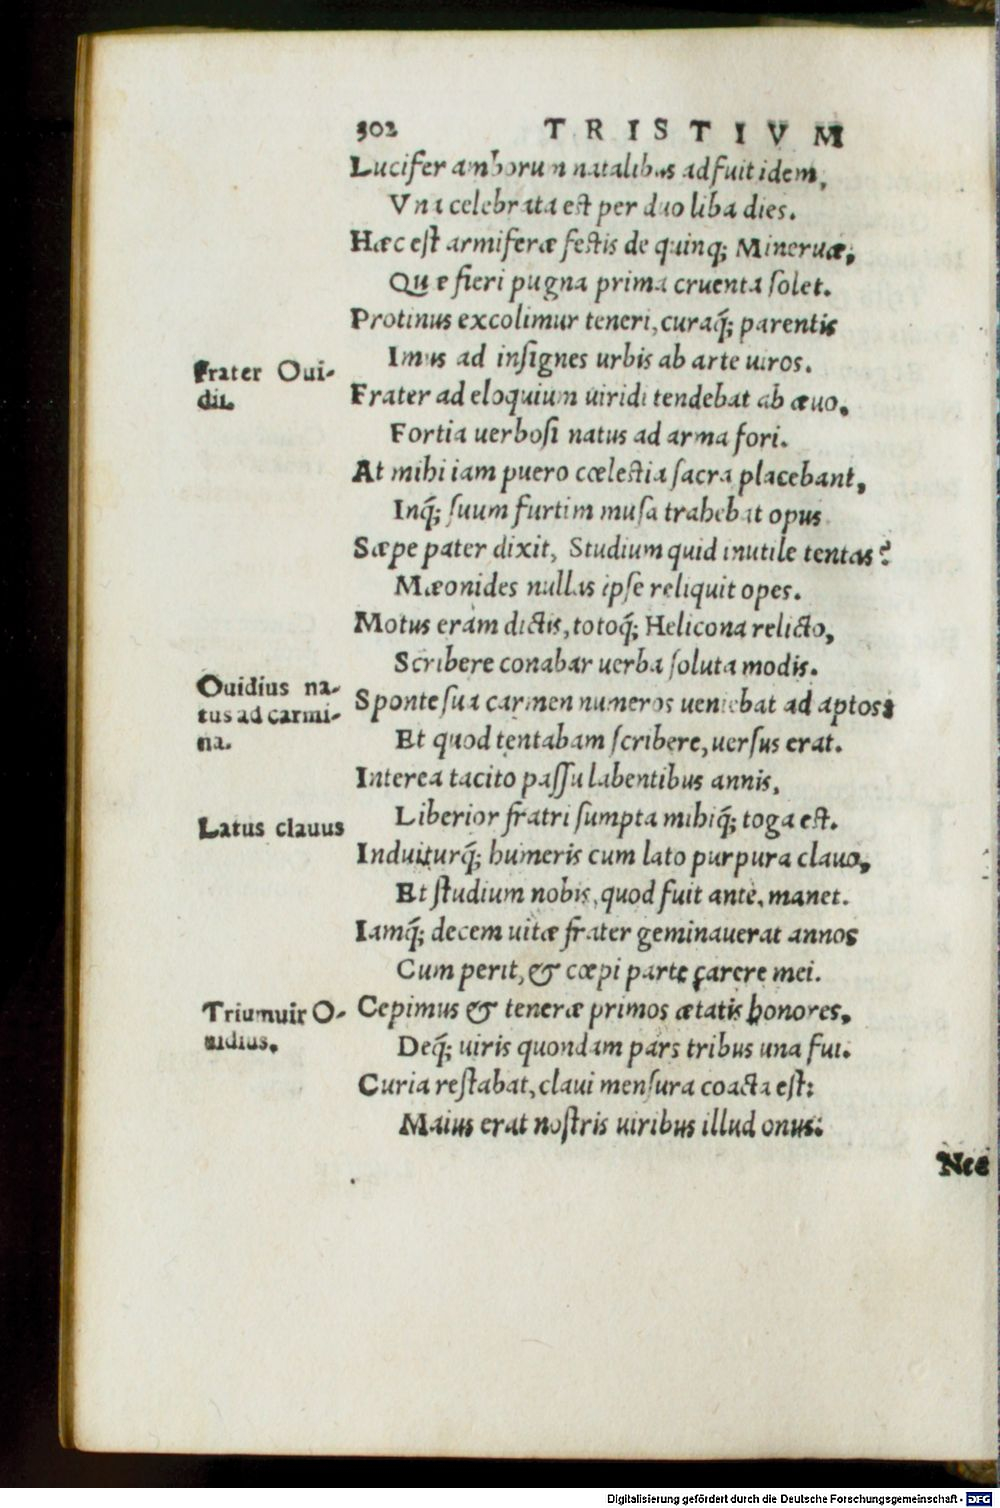 302 TRISTIVM
Lucifer amborum natalibus adfuit idem,
Vna celebrata est per duo liba dies.
Hæc est armiferæ festis de quinq; Mineruæ,
Quæ fieri pugna prima cruenta solet.
Protinus excolimur teneri, curaq́; parentis
Imus ad insignes urbis ab arte uiros.
Frater Oui-
dii.
Frater ad eloquium uiridi tendebat ab æuo,
Fortia uerbosi natus ad arma fori.
At mihi iam puero cœlestia sacra placebant,
Inq́; suum furtim musa trahebat opus
Sæpe pater dixit, Studium quid inutile tentas?
Mæonides nullas ipse reliquit opes.
Motus eram dictis, totoq́; Helicona relicto,
Scribere conabar uerba soluta modis.
Ouidius na-
tus ad carmi-
na.
Sponte sua carmen numeros ueniebat ad aptos:
Et quod tentabam scribere, uersus erat.
Interea tacito passu labentibus annis,
Liberior fratri sumpta mihiq́; toga est.
Latus clauus
Induiturq́; humeris cum lato purpura clauo,
Et studium nobis, quod fuit ante, manet.
Iamq́; decem uitæ frater geminauerat annos
Cum perit, & cœpi parte carere mei.
Triumuir O-
uidius.
Cepimus & teneræ primos ætatis honores,
Deq́; uiris quondam pars tribus una fui.
Curia restabat, claui mensura coacta est:
Maius erat nostris uiribus illud onus:
Nec
Digitalisierung gefördert durch die Deutsche Forschungsgemeinschaft - DFG